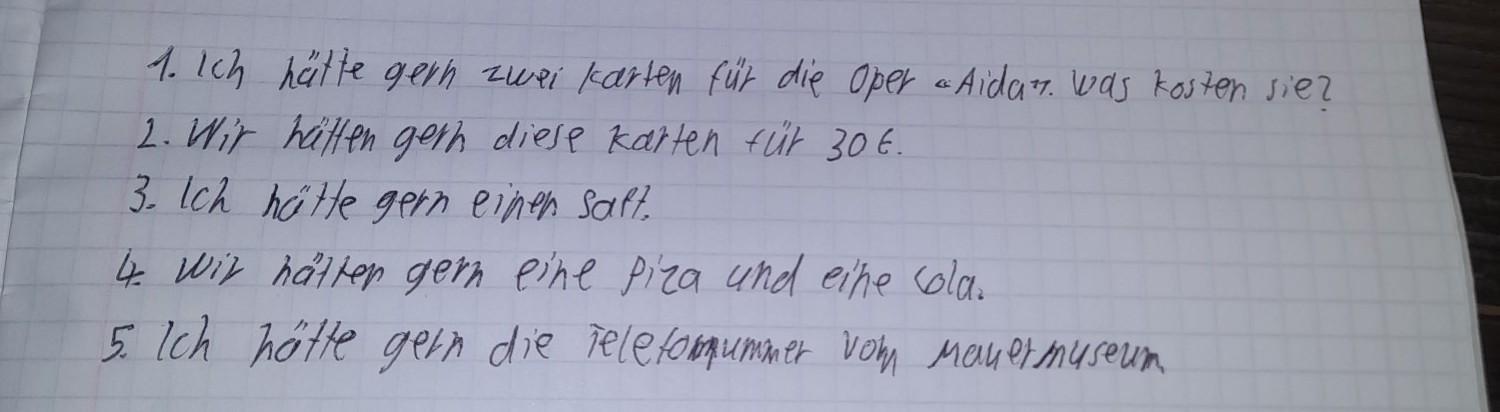 1. Ich hätte gern zwei Karten für die Oper «Aida». Was kosten sie?
2. Wir hätten gern diese Karten für 30 €.
3. Ich hätte gern einen Saft.
4. Wir hätten gern eine Piza und eine Cola.
5. Ich hätte gern die Telefonnummer vom Mauermuseum